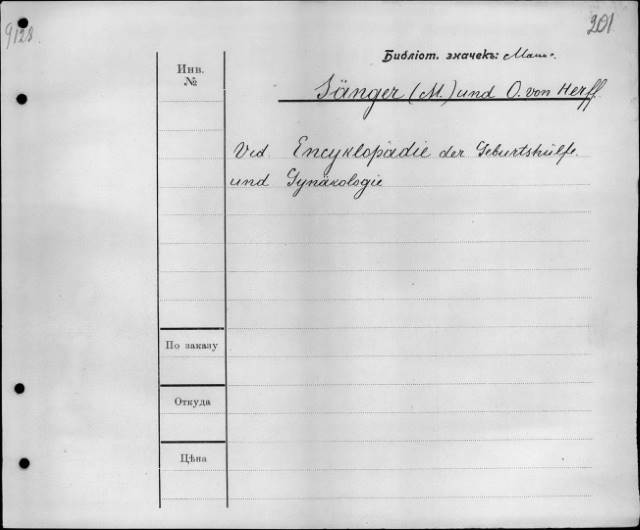 9128
201
Библіот. значекъ:
Инв.
№
Sänger (M.) und O. von Herff.
Vid. Encyklopädie der Geburtshülfe.
und Gynäkologie
По заказу
Откуда
Цѣна